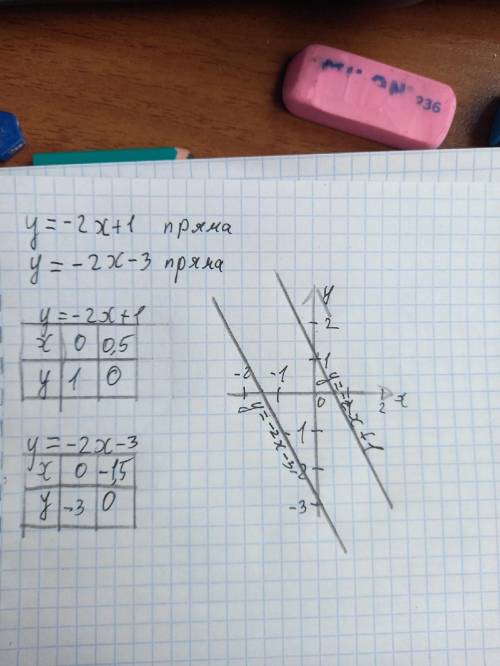 936
y = -2x+1 пряма
y = -2x-3 пряма
y = -2x+1
x 0 0,5
y 1 0
y = -2x-3
x 0 -1,5
y -3 0
y
2
1
-2 -1
0 2 x
1
-2
-3
y=-2x+1
y=-2x-3